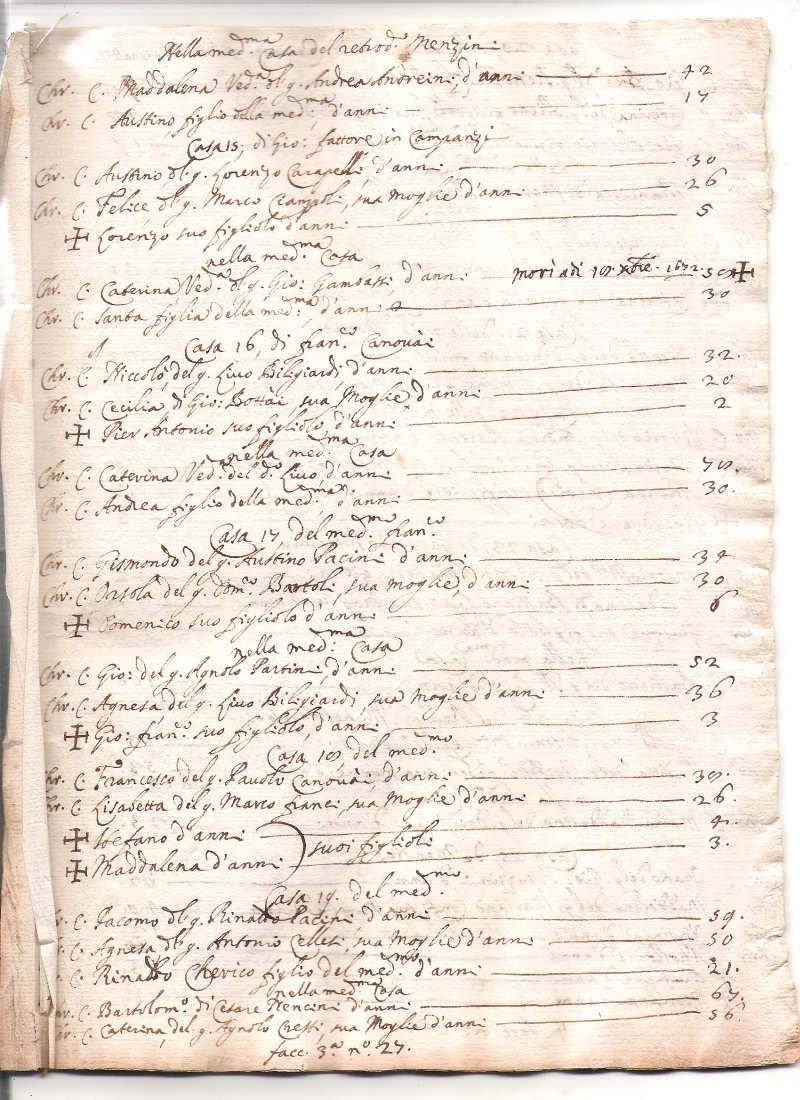 Nella med:ma Casa del retrod.o Menzini
Chr. C. Maddalena Ved.a d'l g. Andrea Andreini, d'anni 42
Chr. C. Austino figlio della med:ma d'anni 17
Casa 15, di Gio: fattore in Campanzi
Chr. C. Austino, d'l g. Lorenzo Carapelli d'anni 30
Chr. C. Felice, d'l g. Marco Ciampoli, sua Moglie d'anni 26
✠ Lorenzo suo figliolo d'anni 5
nella med:ma Casa
Chr. C. Caterina Ved.a d'l g. Gio: Gambassi d'anni morì adì 18 xbre. 1672. 58 ✠
Chr. C. Santa figlia della med:ma, d'anni 30
Casa 16, di fran.co Canovai
Chr. C. Niccolò, del g. Livo Biligiardi, d'anni 32.
Chr. C. Cecilia di Gio: Bottai, sua Moglie d'anni 20
✠ Pier Antonio suo figliolo, d'anni 2
nella med:ma Casa
Chr. C. Caterina Ved.a del d.o Livo d'anni 78.
Chr. C. Andrea figlio della med:ma d'anni 30.
Casa 17, del med:mo fran.co
Chr. C. Gismondo del g. Austino Pacini d'anni 34
Chr. C. Orsola del g. Dom.co Bartoli, sua moglie, d'anni 30
✠ Domenico suo figliolo d'anni 6
nella med:ma Casa
Chr. C. Gio: del g. Agnolo Partini, d'anni 52
Chr. C. Agnesa del g. Livo Biligiardi, sua Moglie d'anni 36
✠ Gio: fran.co suo figliolo, d'anni 3
Casa 18, del med:mo
Chr. C. Francesco del g. Pavolo Canovai, d'anni 38.
Chr. C. Lisabetta del g. Marco franci, sua Moglie d'anni 26.
✠ Stefano d'anni 4.
✠ Maddalena d'anni ) suoi figlioli 3.
Casa 19. del med:mo
C. Iacomo d'l g. Rinaldo Pacini d'anni 59.
C. Agnesa d'l g. Antonio Cellesi, sua Moglie d'anni 50
C. Rinaldo Cherico figlio del med:mo d'anni 21.
nella med:ma Casa
Chr. C. Bartolom.o di Cesare Nencini d'anni 67.
Chr. C. Caterina, del g. Agnolo Cresti, sua Moglie d'anni 56
facc. 3.a n.o 27.